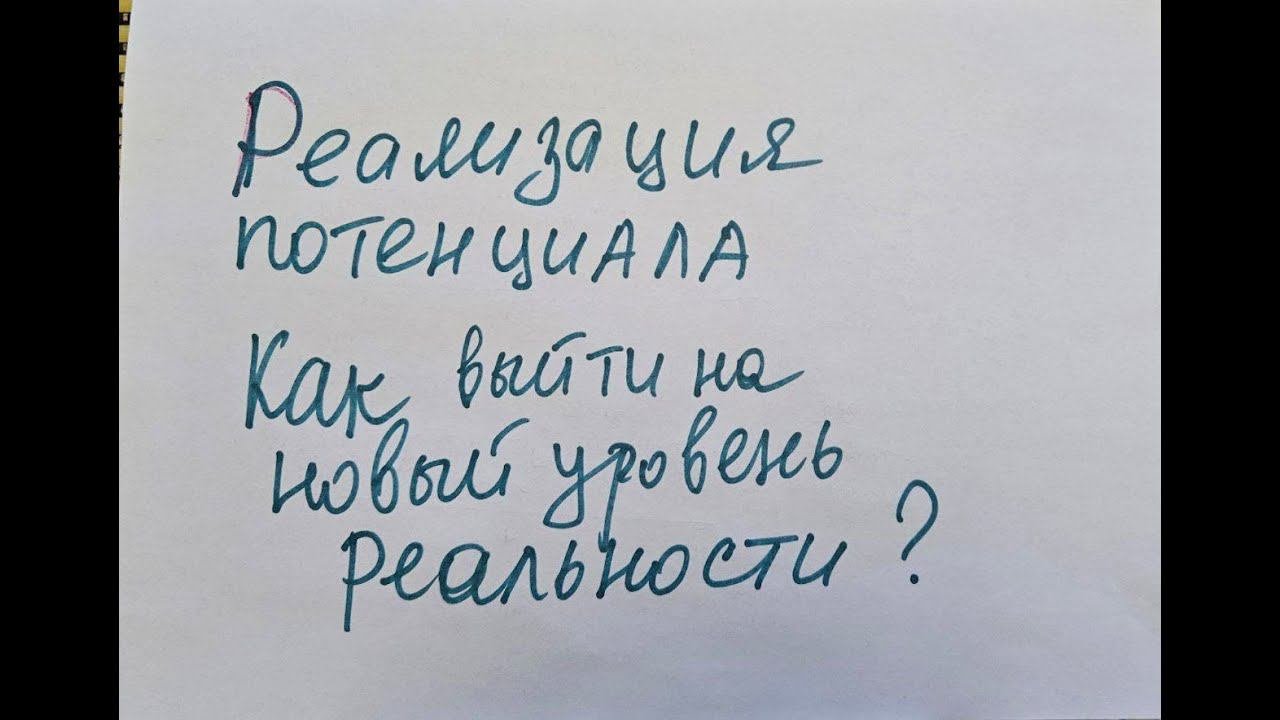 Реализация
потенциала
Как выйти на
новый уровень
реальности?